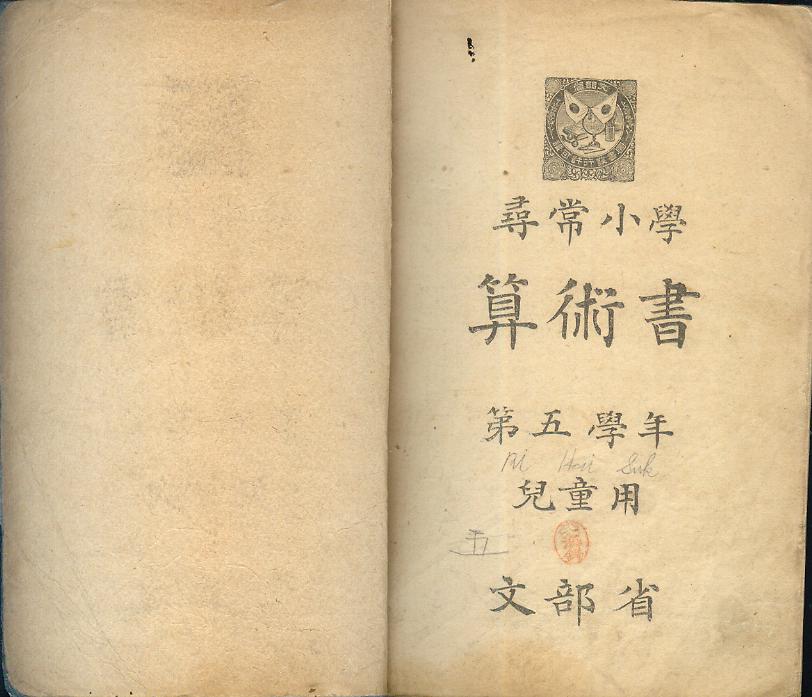 尋常小學
算術書
第五學年
兒童用
五
文部省